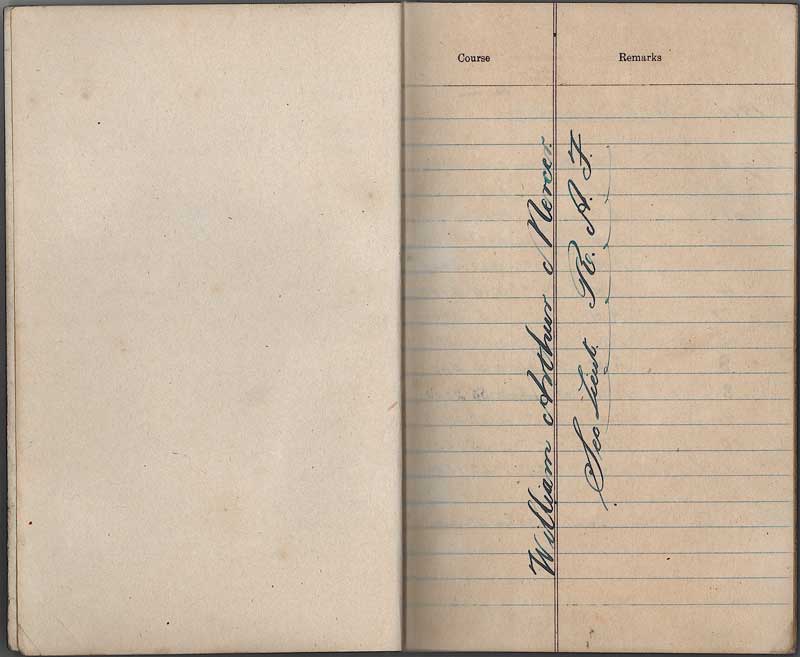 Course Remarks
William Arthur Mercer.
Sec Lieut. R. A. F.